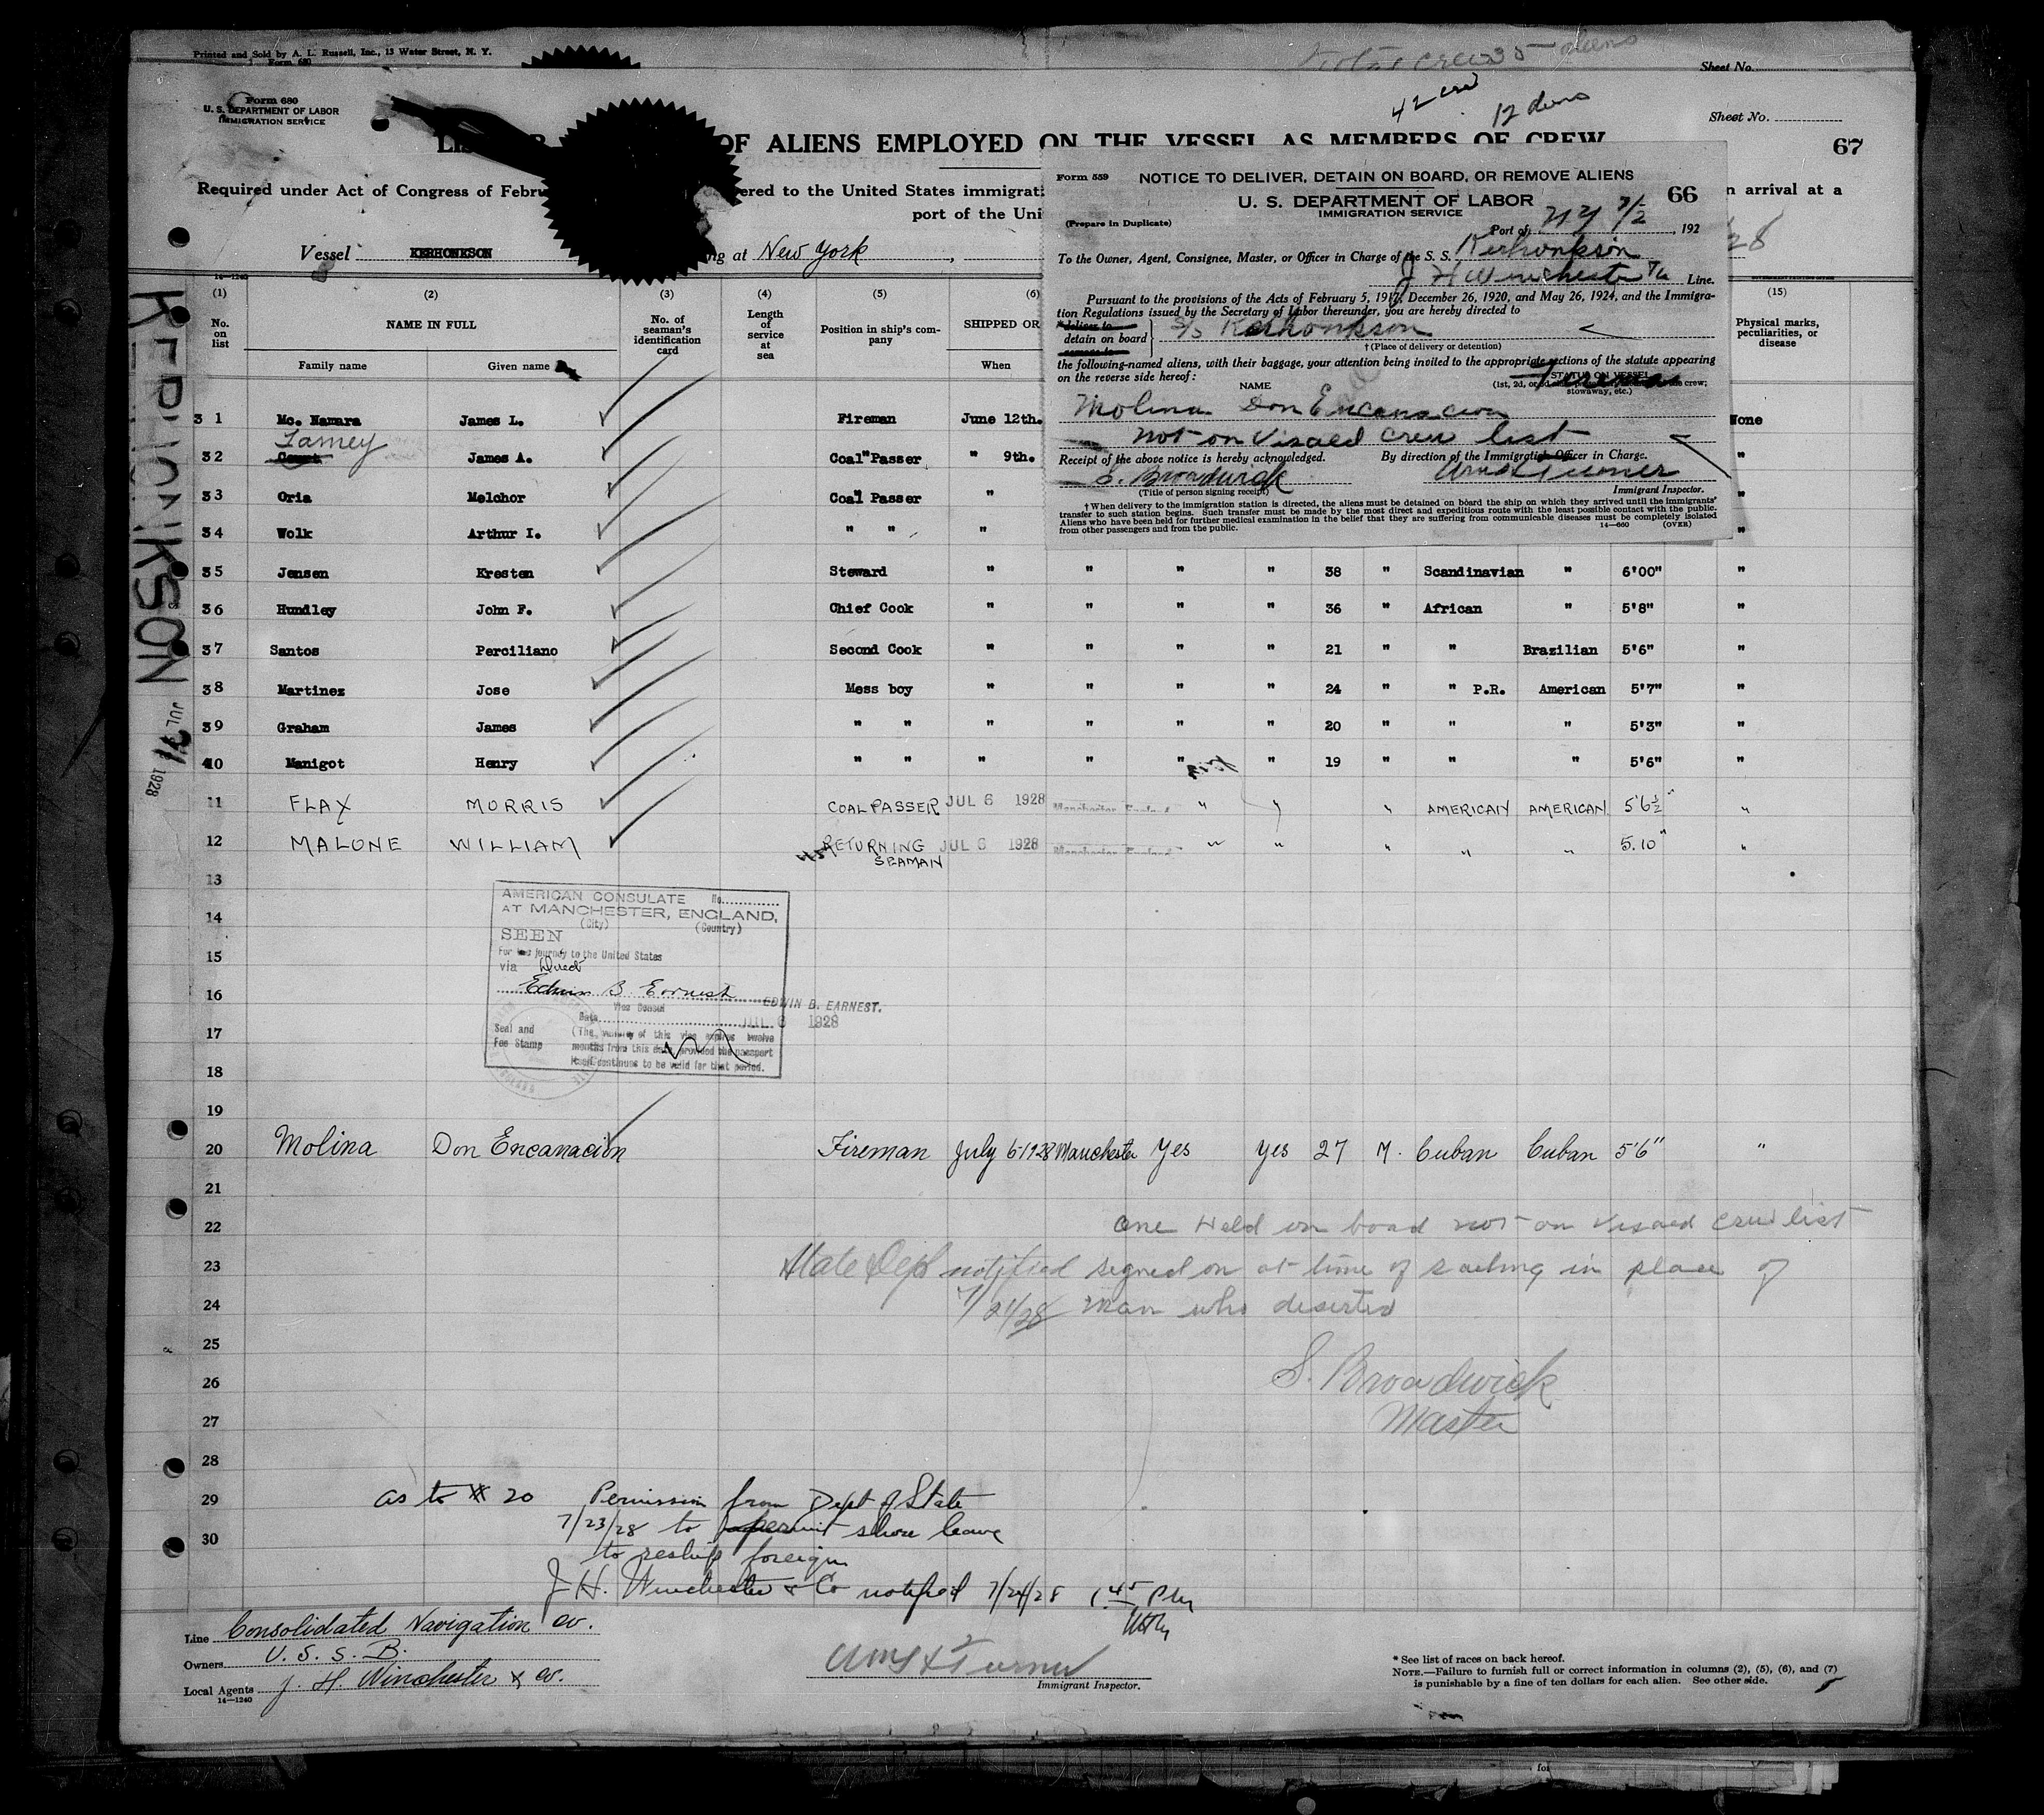 Printed and Sold by A. L. Russell, Inc., 13 Water Street, N. Y.
Form 680
Sheet No.
Form 680
U. S. DEPARTMENT OF LABOR
IMMIGRATION SERVICE
42 crew
Sheet No.
OF ALIENS EMPLOYED ON THE VESSEL AS MEMBERS OF CREW
67
Required under Act of Congress of ered to the United States n arrival at a
port of the
Vessel KERHONKSON at New York , 28
KERHONKSON
JUL 21 1928
Form 559
NOTICE TO DELIVER, DETAIN ON BOARD, OR REMOVE ALIENS
U. S. DEPARTMENT OF LABOR
66
IMMIGRATION SERVICE
(Prepare in Duplicate)
Port of NY , 192
To the Owner, Agent, Consignee, Master, or Officer in Charge of the S. S. Kerhonkson
J H Winchester Co Line.
Pursuant to the provisions of the Acts of February 5, 1917, December 26, 1920, and May 26, 1924, and the Immigra-
tion Regulations issued by the Secretary of Labor thereunder, you are hereby directed to
deliver to
detain on board S/S Kerhonkson
remove to
† (Place of delivery or detention)
the following-named aliens, with their baggage, your attention being invited to the appropriate sections of the statute appearing
on the reverse side hereof:
NAME
STATUS ON VESSEL
stowaway, etc.)
Molina Don Encanacion Fireman
not on Visaed crew list
Receipt of the above notice is hereby acknowledged. By direction of the Immigration Officer in Charge.
S. Broadwick Turner
(Title of person signing receipt) Immigrant Inspector.
† When delivery to the immigration station is directed, the aliens must be detained on board the ship on which they arrived until the immigrants'
transfer to such station begins. Such transfer must be made by the most direct and expeditious route with the least possible contact with the public.
Aliens who have been held for further medical examination in the belief that they are suffering from communicable diseases must be completely isolated
from other passengers and from the public.
14—660 (OVER)
(1) (2) (3) (4) (5) (6) (15)
No. on list
NAME IN FULL
Family name
Given name
No. of seaman's identification card
Length of service at sea
Position in ship's com-pany
SHIPPED OR
When
Physical marks, peculiarities, or disease
31 Mc. Namara James L. Fireman June 12th. None
Lamey
32 Court James A. Coal Passer " 9th. "
33 Oria Melchor Coal Passer " "
34 Wolk Arthur I. " " " "
35 Jensen Kresten Steward " " " " 38 " Scandinavian " 6'00" "
36 Hundley John F. Chief Cook " " " " 36 " African " 5'8" "
37 Santos Perciliano Second Cook " " " " 21 " " Brazilian 5'6" "
38 Martinez Jose Mess boy " " " " 24 " " P.R. American 5'7" "
39 Graham James " " " " " " 20 " " " 5'3" "
40 Manigot Henry " " " " " " 19 " " " 5'6" "
11 FLAX MORRIS COAL PASSER JUL 6 1928 Manchester England " " " AMERICAN AMERICAN 5'6½" "
12 MALONE WILLIAM RETURNING SEAMAN JUL 6 1928 Manchester England " " " " " 5.10" "
13
14
15
16
17
18
19
AMERICAN CONSULATE No.
AT MANCHESTER, ENGLAND.
(City) (Country)
SEEN
For the journey to the United States
via Direct
Edwin B. Earnest EDWIN B. EARNEST.
Vice Consul
Date JUL 6 1928
Seal and Fee Stamp
(The validity of this visa expires twelve
months from this date provided the passport
itself continues to be valid for that period.
20 Molina Don Encanación Fireman July 6-1928 Manchester Yes Yes 27 M. Cuban Cuban 5'6" "
21
22 One held on board not on visaed crew list
23 State Dept notified signed on at time of sailing in place of
24 7/21/28 man who deserted
25
26 S. Broadwick
27 Master
28
29 As to # 20 Permission from Dept of State
30 7/23/28 to permit shore leave
to reship foreign
J. H. Winchester & Co notified 7/24/28 1.45 PM
Line Consolidated Navigation Co.
Owners U. S. S. B.
Local Agents J. H. Winchester & Co.
14—1240
Turner
Immigrant Inspector.
* See list of races on back hereof.
NOTE.—Failure to furnish full or correct information in columns (2), (5), (6), and (7)
is punishable by a fine of ten dollars for each alien. See other side.